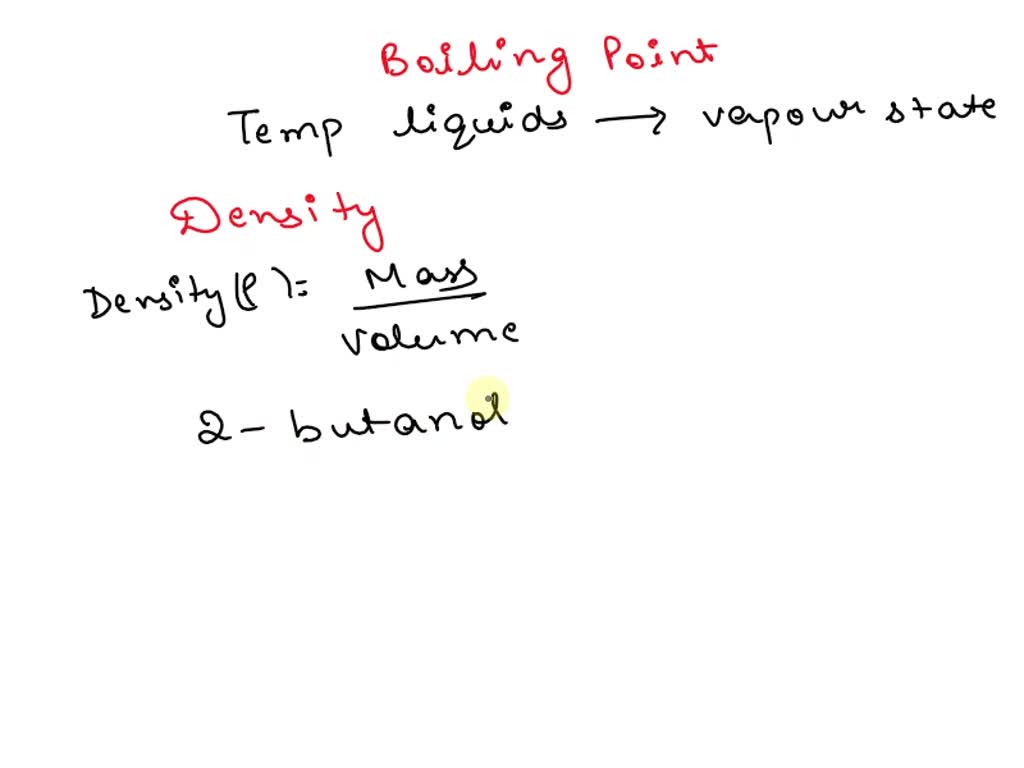 Boiling Point
Temp liquids → vapour state
Density
Density(ρ)= Mass
volume
2- butanol